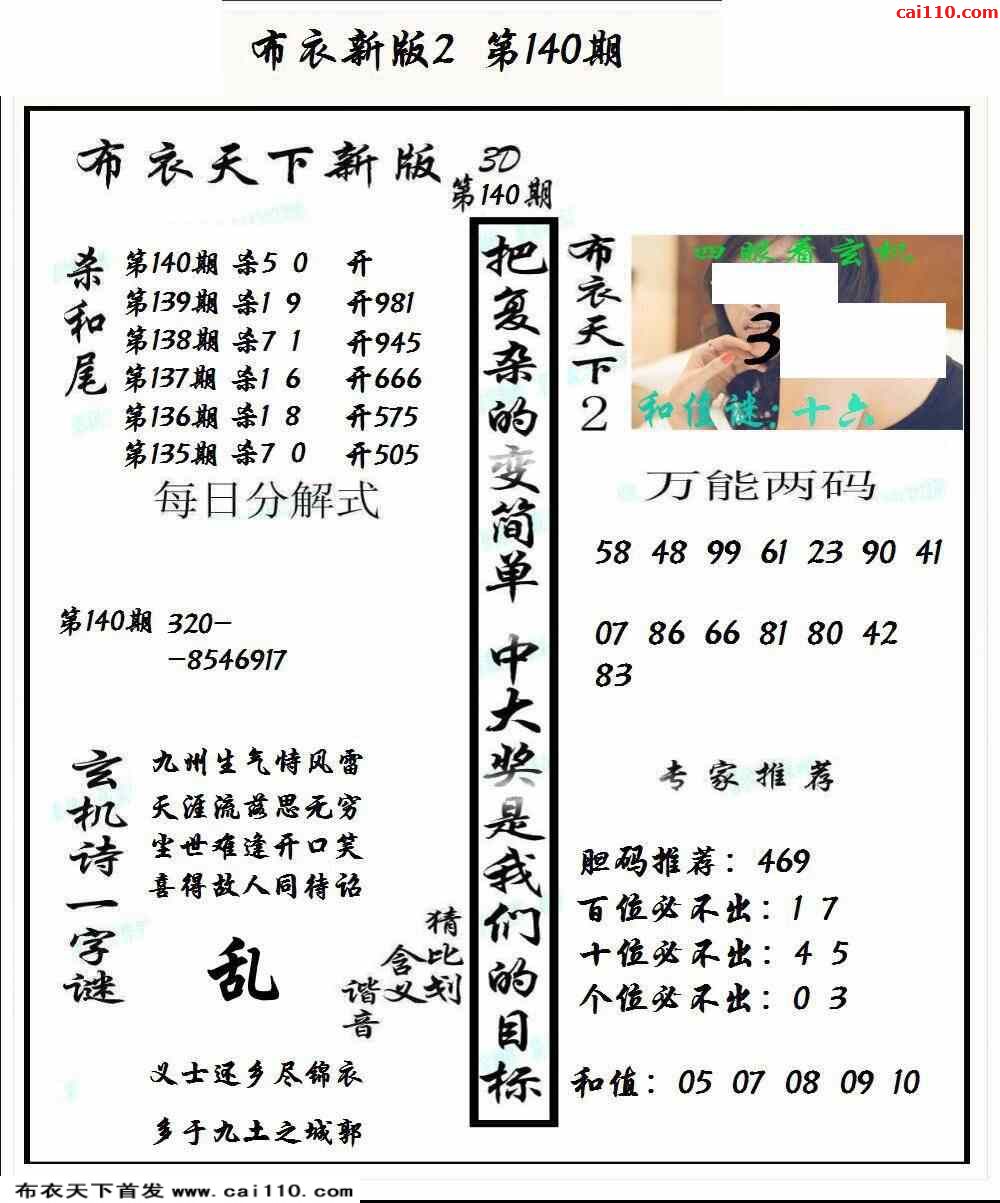 cai110.com
布衣新版2 第140期
布衣天下新版 3D
第140期
杀和尾
第140期 杀5 0 开
第139期 杀1 9 开981
第138期 杀7 1 开945
第137期 杀1 6 开666
第136期 杀1 8 开575
第135期 杀7 0 开505
每日分解式
第140期 320-
-8546917
玄机诗一字谜
九州生气恃风雷
天涯流落思无穷
尘世难逢开口笑
喜得故人同待诏
乱
猜比划
含义
谐音
义士还乡尽锦衣
多于九土之城郭
把复杂的变简单 中大奖是我们的目标
布衣天下2
四眼看玄机
3
和值谜:十六
万能两码
58 48 99 61 23 90 41
07 86 66 81 80 42
83
专家推荐
胆码推荐：469
百位必不出：1 7
十位必不出：4 5
个位必不出：0 3
和值：05 07 08 09 10
布衣天下首发 www.cai110.com